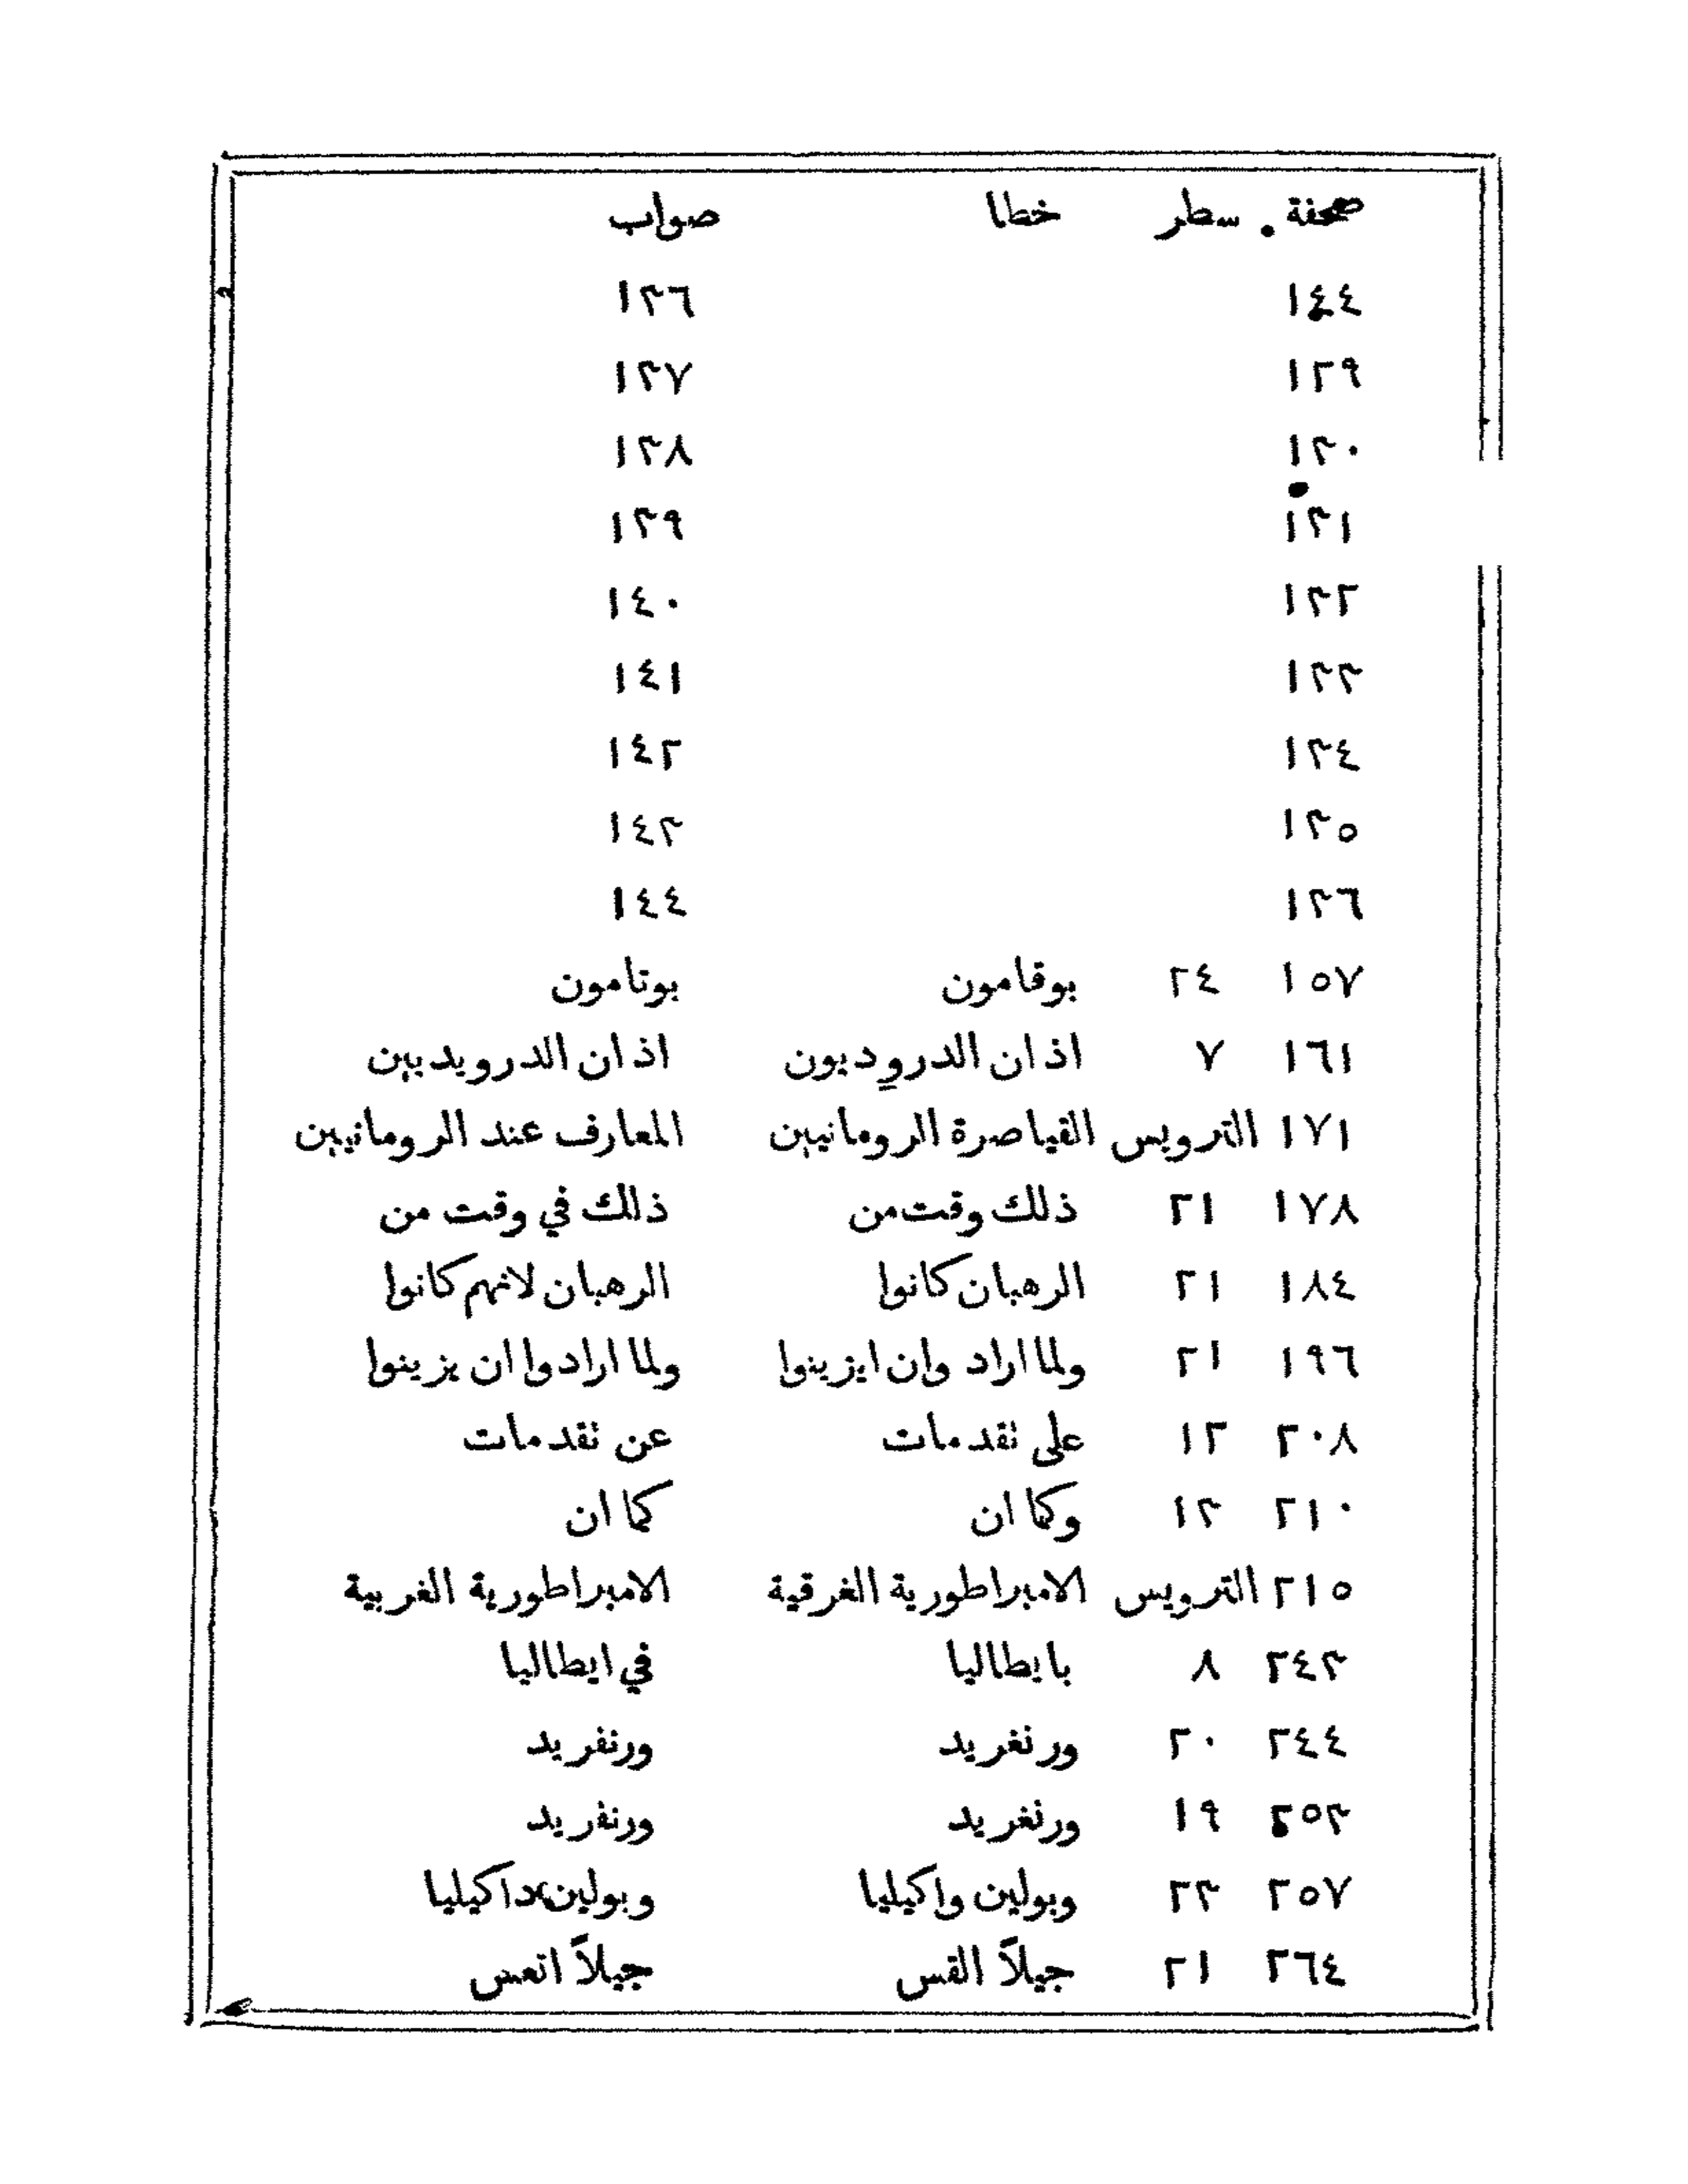 صحفة سطر خطا صواب
١٤٤ ١٣٦
١٢٩ ١٣٧
١٣٠ ١٣٨
١٣١ ١٣٩
١٣٢ ١٤٠
١٣٣ ١٤١
١٣٤ ١٤٢
١٣٥ ١٤٣
١٣٦ ١٤٤
١٥٧ ٢٤ بوقامون بوتامون
١٦١ ٧ اذ ان الدروديون اذ ان الدرويديين
١٧١ الترويس القياصرة الرومانيين المعارف عند الرومانيين
١٧٨ ٢١ ذلك وقت من ذلك في وقت من
١٨٤ ٢١ الرهبان كانوا الرهبان لانهم كانوا
١٩٦ ٢١ ولما اراد وان ايزينوا ولما ارادوا ان يزينوا
٢٠٨ ١٢ على نقدمات عن نقدمات
٢١٠ ١٣ وكما ان كما ان
٢١٥ الترويس الامبراطورية الغرقية الامبراطورية الغربية
٢٤٣ ٨ بايطاليا في ايطاليا
٢٤٤ ٢٠ ورنغريد ورنفريد
٢٥٣ ١٩ ورنغريد ورنفريد
٢٥٧ ٢٣ وبولين واكيليا وبولين داكيليا
٢٦٤ ٢١ جيلاً القس جيلاً اتعس